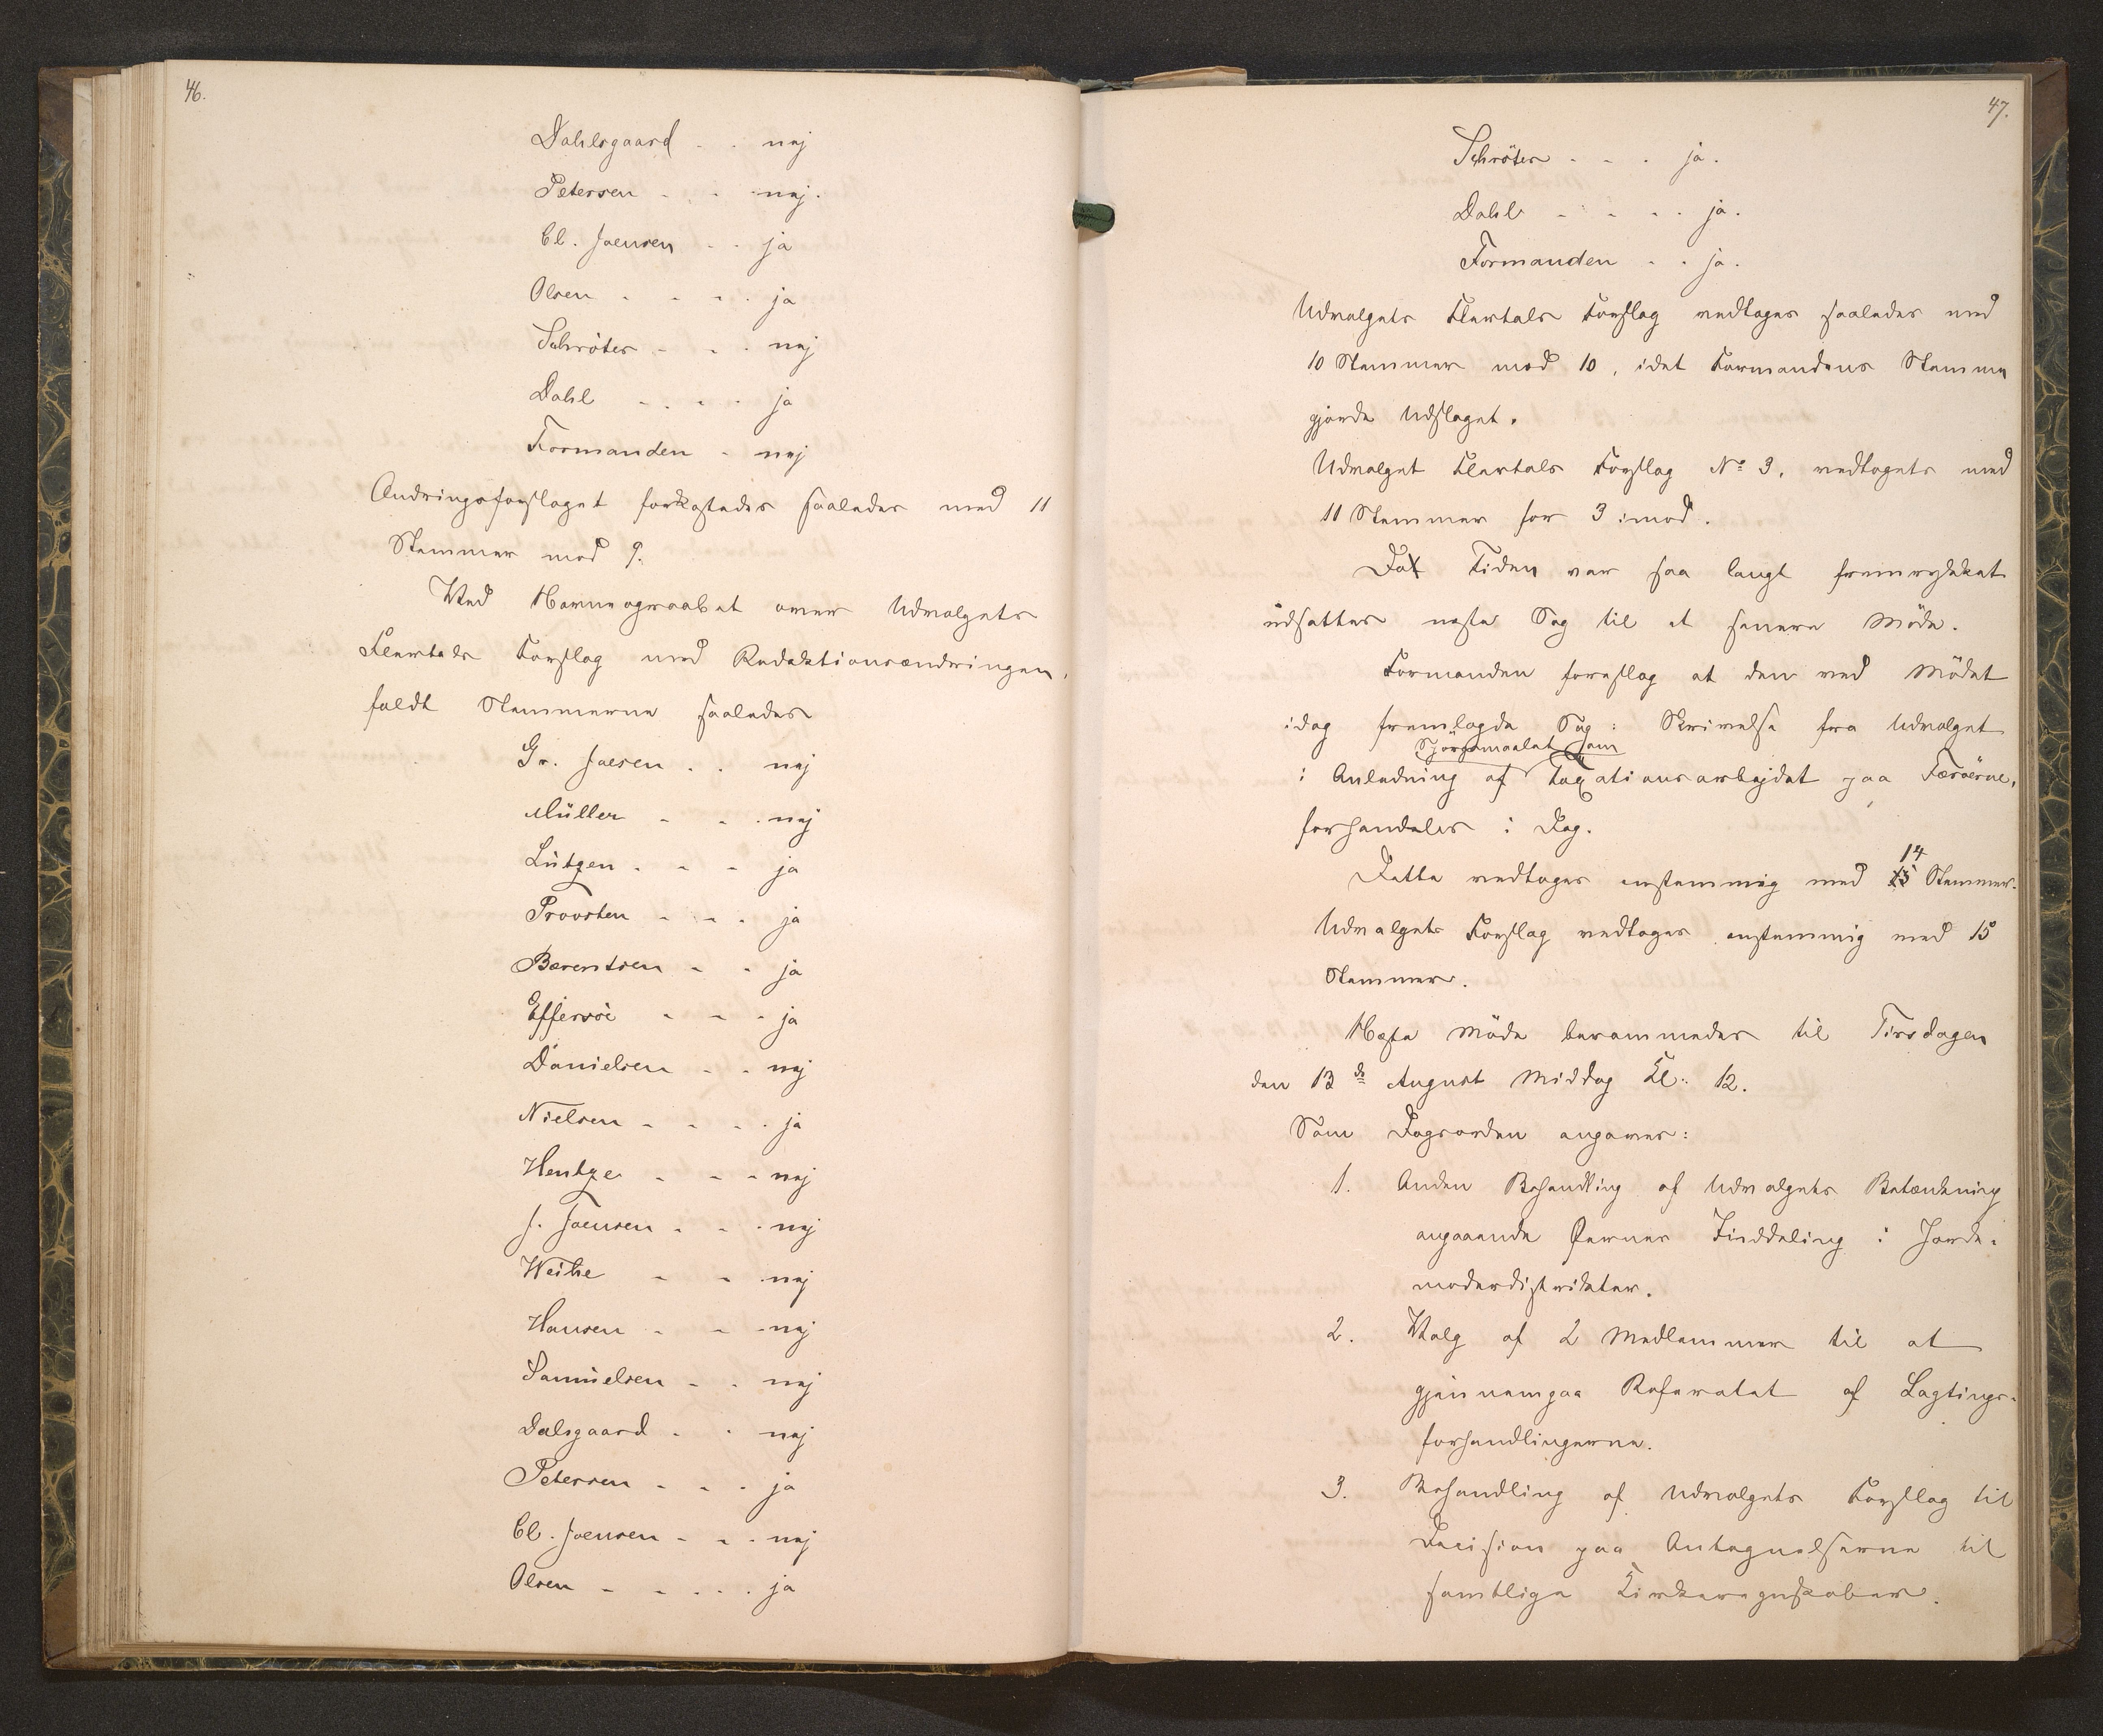 46.
Dahlsgaard - - nej
Petersen - - - nej.
Cl. Joensen - - ja
Olsen - - - - ja
Schröter - - - nej
Dahl - - - - ja
Formanden - nej
Ændringsforslaget forkastedes saaledes med 11
Stemmer mod 9.
Ved Navneopraabet over Udvalgets
Flertals Forslag med Redaktionsændringen,
faldt Stemmerne saaledes
Gr. Joesen . . nej
Müller - - . nej
Lützen . - - ja
Provsten - - . ja
Bærentsen - - ja
Effersöe - - - ja
Danielsen - - nej
Nielsen - - - . ja
Hentze - - - nej
J. Joensen - - . nej
Weihe - - nej
Hansen - - - nej
Samuelsen - - nej
Dalsgaard . . nej
Petersen - - . ja
Cl. Joensen - - . nej
Olsen - - . . . ja
47.
Schröter - - . ja.
Dahl - - - . ja.
Formanden - . ja.
Udvalgets Flertals Forslag vedtoges saaledes med
10 Stemmer mod 10, idet Formandens Stemme
gjorde Udslaget.
Udvalget Flertals Forslag No 3. vedtogets med
11 Stemmer for 3 imod.
Da Tiden var saa langt fremrykket
udsattes neste Sag til et senere Möde.
Formanden foreslog at den ved Mödet
idag fremlagde Sag: Skrivelse fra Udvalget
Spörgsmaalet om
i Anledning af Taxationsarbejdet paa Færöerne,
forhandles i Dag.
14
Dette vedtoges enstemmig med 15 Stemmer.
Udvalgets Forslag vedtoges enstemmig med 15
Stemmer.
Næste Möde berammedes til Tirsdagen
den 13de August Middag Kl. 12.
Som Dagsorden angaves:
1. Anden Behandling af Udvalgets Betænkning
angaaende Øernes Inddeling i Jorde-
moderdistrikter.
2. Valg af 2 Medlemmer til at
gjennemgaa Referatet af Lagtings-
forhandlingerne.
3. Behandling af Udvalgets Forslag til
Decision paa Antegnelserne til
samtlige Kirkeregnskaber.